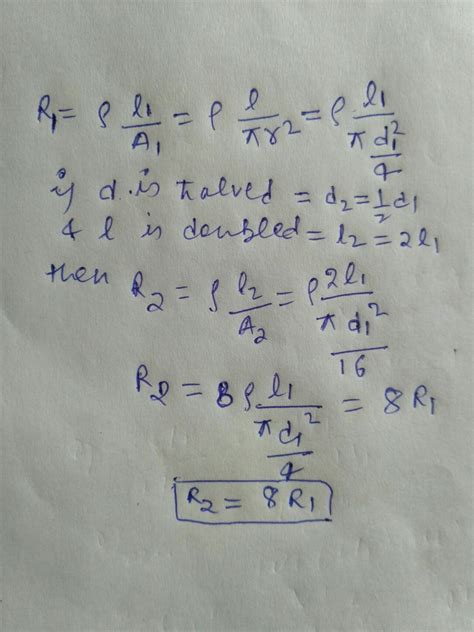 R₁ = ρ l₁/A₁ = ρ l/πr² = ρ l₁/(π d₁²/4)
if d is halved = d₂ = 1/2 d₁
& l is doubled = l₂ = 2l₁
then R₂ = ρ l₂/A₂ = ρ 2l₁/(π d₁²/16)
R₂ = 8ρ l₁/(π d₁²/4) = 8R₁
R₂ = 8R₁